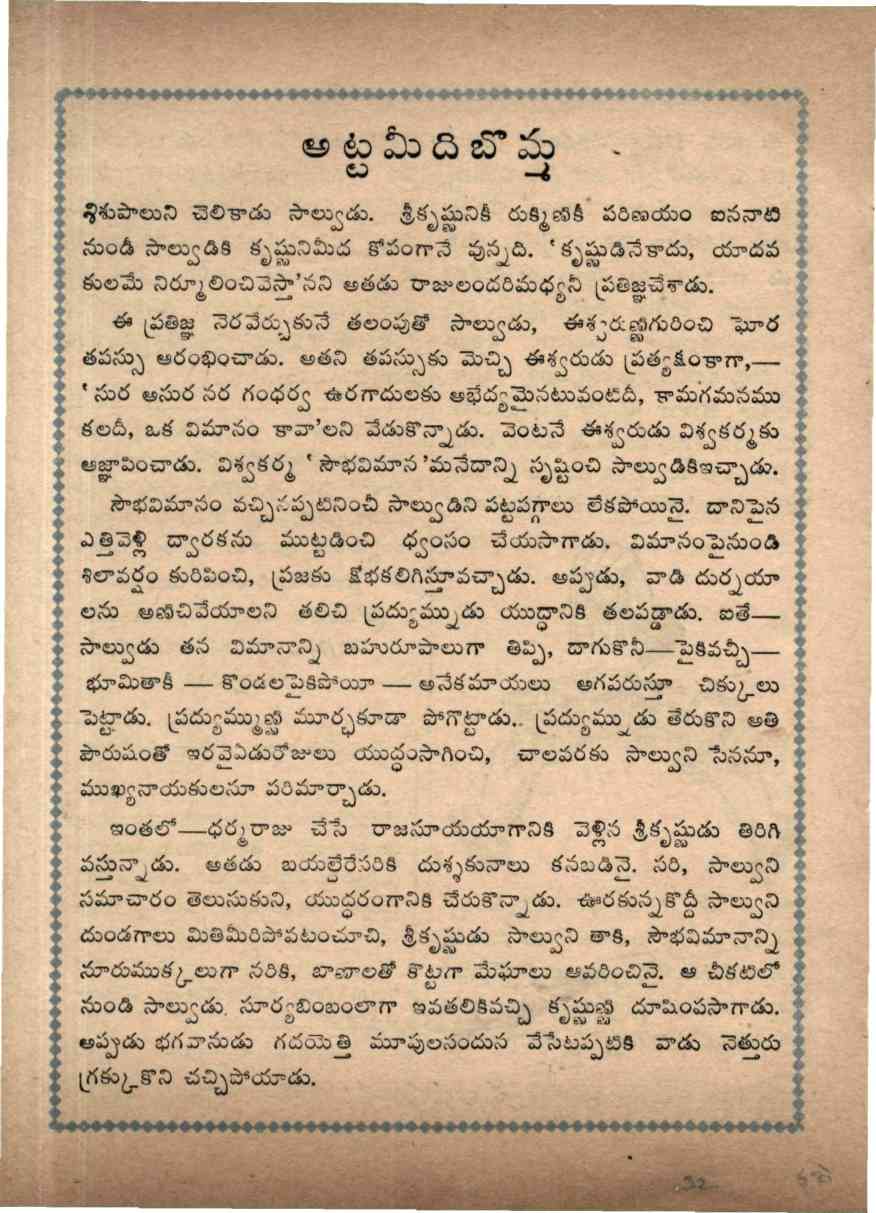 అట్టమీదిబొమ్మ
శిశుపాలుని చెలికాడు సాల్వుడు. శ్రీకృష్ణునికీ రుక్మిణికీ పరిణయం ఐననాటి
నుండీ సాల్వుడికి కృష్ణునిమీద కోపంగానే వున్నది. ‘కృష్ణుడినేకాదు, యాదవ
కులమే నిర్మూలించివెస్తా’నని అతడు రాజులందరిమధ్యనీ ప్రతిజ్ఞచేశాడు.
ఈ ప్రతిజ్ఞ నెరవేర్చుకునే తలంపుతో సాల్వుడు, ఈశ్వరుణ్ణిగురించి ఘోర
తపస్సు ఆరంభించాడు. అతని తపస్సుకు మెచ్చి ఈశ్వరుడు ప్రత్యక్షంకాగా,—
‘సుర అసుర నర గంధర్వ ఉరగాదులకు అభేద్యమైనటువంటిదీ, కామగమనము
కలదీ, ఒక విమానం కావా’లని వేడుకొన్నాడు. వెంటనే ఈశ్వరుడు విశ్వకర్మకు
ఆజ్ఞాపించాడు. విశ్వకర్మ ‘సౌభవిమాన’మనేదాన్ని సృష్టించి సాల్వుడికిఇచ్చాడు.
సౌభవిమానం వచ్చినప్పటినించీ సాల్వుడిని పట్టపగ్గాలు లేకపోయినై. దానిపైన
ఎత్తివెళ్లి ద్వారకను ముట్టడించి ధ్వంసం చేయసాగాడు. విమానంపైనుండి
శిలావర్షం కురిపించి, ప్రజకు క్షోభకలిగిస్తూవచ్చాడు. అప్పుడు, వాడి దుర్నయా
లను అణిచివేయాలని తలిచి ప్రద్యుమ్నుడు యుద్ధానికి తలపడ్డాడు. ఐతే—
సాల్వుడు తన విమానాన్ని బహురూపాలుగా తిప్పి, దాగుకొనీ—పైకివచ్చీ—
భూమితాకీ — కొండలపైకిపోయీ — అనేకమాయలు అగపరుస్తూ చిక్కులు
పెట్టాడు. ప్రద్యుమ్నుణ్ణి మూర్ఛకూడా పోగొట్టాడు.. ప్రద్యుమ్నుడు తేరుకొని అతి
పౌరుషంతో ఇరవైఏడురోజులు యుద్ధంసాగించి, చాలవరకు సాల్వుని సేననూ,
ముఖ్యనాయకులనూ పరిమార్చాడు.
ఇంతలో—ధర్మరాజు చేసే రాజసూయయాగానికి వెళ్లిన శ్రీకృష్ణుడు తిరిగి
వస్తున్నాడు. అతడు బయల్దేరేసరికి దుశ్శకునాలు కనబడినై. సరి, సాల్వుని
సమాచారం తెలుసుకుని, యుద్ధరంగానికి చేరుకొన్నాడు. ఊరకున్నకొద్దీ సాల్వుని
దుండగాలు మితిమీరిపోవటంచూచి, శ్రీకృష్ణుడు సాల్వుని తాకి, సౌభవిమానాన్ని
నూరుముక్కలుగా నరికి, బాణాలతో కొట్టగా మేఘాలు ఆవరించినై. ఆ చీకటిలో
నుండి సాల్వుడు సూర్యబింబంలాగా ఇవతలికివచ్చి కృష్ణుణ్ణి దూషింపసాగాడు.
అప్పుడు భగవానుడు గదయెత్తి మూపులసందున వేసేటప్పటికి వాడు నెత్తురు
గ్రక్కుకొని చచ్చిపోయాడు.
32